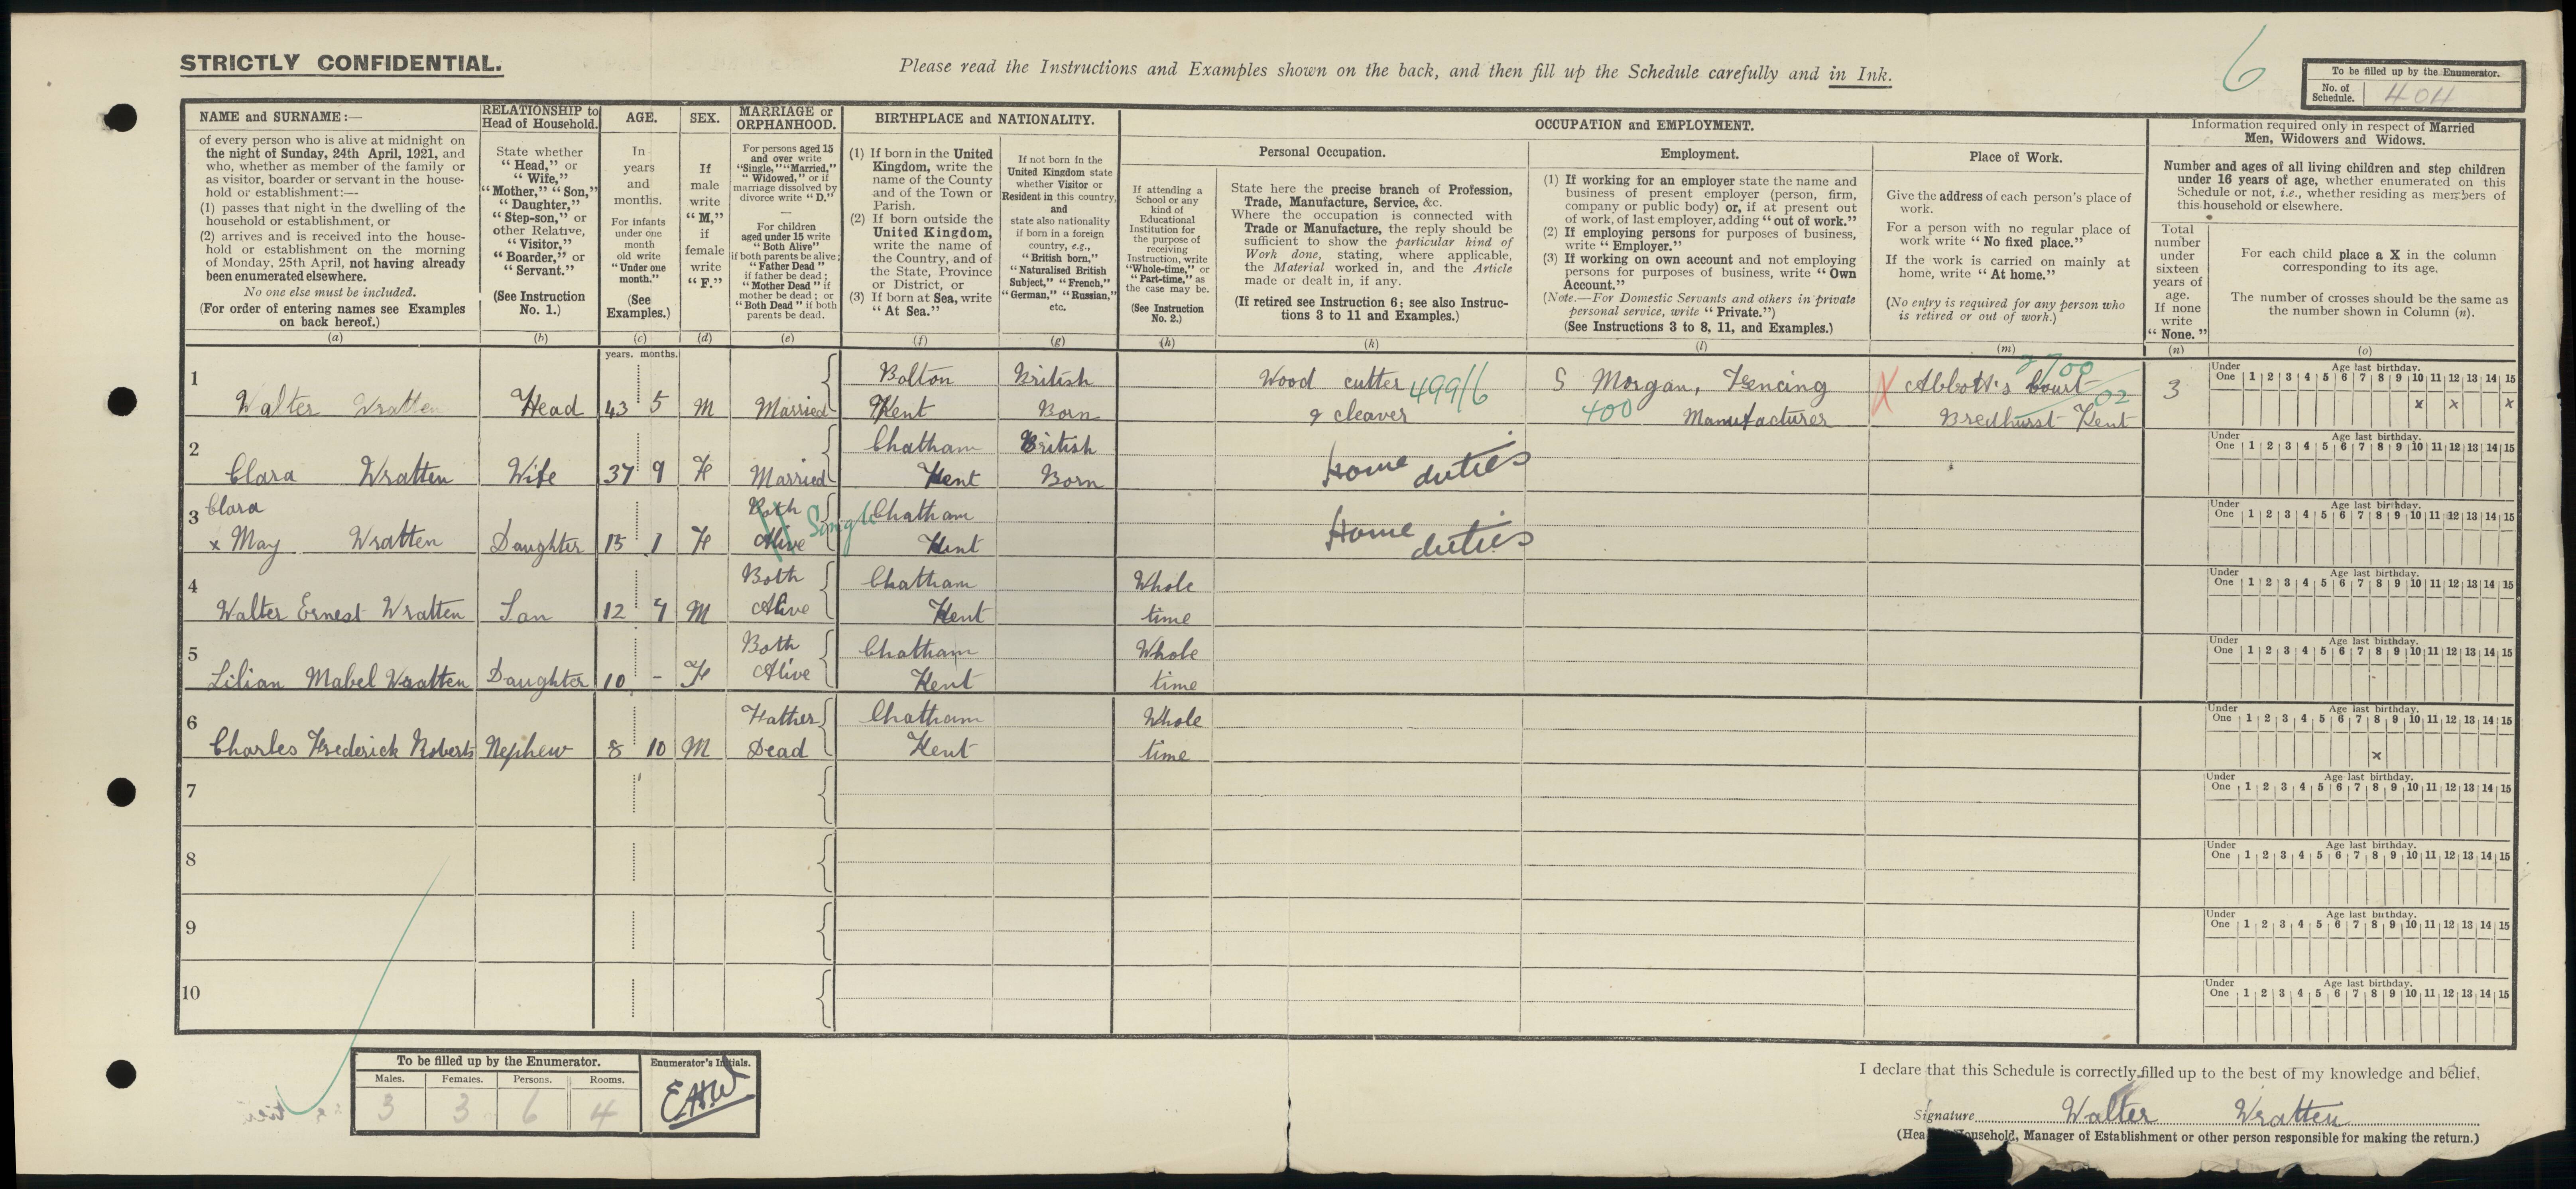 STRICTLY CONFIDENTIAL.
Please read the Instructions and Examples shown on the back, and then fill up the Schedule carefully and in Ink.
6
To be filled up by the Enumerator.
No. of Schedule. 404
NAME and SURNAME:—
of every person who is alive at midnight on
the night of Sunday, 24th April, 1921, and
who, whether as member of the family or
as visitor, boarder or servant in the house-
hold or establishment:—
(1) passes that night in the dwelling of the
household or establishment, or
(2) arrives and is received into the house-
hold or establishment on the morning
of Monday, 25th April, not having already
been enumerated elsewhere.
No one else must be included.
(For order of entering names see Examples
on back hereof.)
(a)
RELATIONSHIP to
Head of Household.
State whether
"Head," or
"Wife,"
"Mother," "Son,"
"Daughter,"
"Step-son," or
other Relative,
"Visitor,"
"Boarder," or
"Servant."
(See Instruction
No. 1.)
(b)
AGE.
In
years
and
months.
For infants
under one
month
old write
"Under one
month."
(See
Examples.)
(c)
SEX.
If
male
write
"M,"
if
female
write
"F."
(d)
MARRIAGE or
ORPHANHOOD.
For persons aged 15
and over write
"Single," "Married,"
"Widowed," or if
marriage dissolved by
divorce write "D."
—
For children
aged under 15 write
"Both Alive"
if both parents be alive;
"Father Dead"
if father be dead;
"Mother Dead" if
mother be dead; or
"Both Dead" if both
parents be dead.
(e)
BIRTHPLACE and NATIONALITY.
(1) If born in the United
Kingdom, write the
name of the County
and of the Town or
Parish.
(2) If born outside the
United Kingdom,
write the name of
the Country, and of
the State, Province
or District, or
(3) If born at Sea, write
"At Sea."
(f)
If not born in the
United Kingdom state
whether Visitor or
Resident in this country,
and
state also nationality
if born in a foreign
country, e.g.,
"British born,"
"Naturalised British
Subject," "French,"
"German," "Russian,"
etc.
(g)
OCCUPATION and EMPLOYMENT.
If attending a
School or any
kind of
Educational
Institution for
the purpose of
receiving
Instruction, write
"Whole-time," or
"Part-time," as
the case may be.
(See Instruction
No. 2.)
(h)
Personal Occupation.
State here the precise branch of Profession,
Trade, Manufacture, Service, &c.
Where the occupation is connected with
Trade or Manufacture, the reply should be
sufficient to show the particular kind of
Work done, stating, where applicable,
the Material worked in, and the Article
made or dealt in, if any.
(If retired see Instruction 6; see also Instruc-
tions 3 to 11 and Examples.)
(k)
Employment.
(1) If working for an employer state the name and
business of present employer (person, firm,
company or public body) or, if at present out
of work, of last employer, adding "out of work."
(2) If employing persons for purposes of business,
write "Employer."
(3) If working on own account and not employing
persons for purposes of business, write "Own
Account."
(Note.—For Domestic Servants and others in private
personal service, write "Private.")
(See Instructions 3 to 8, 11, and Examples.)
(l)
Place of Work.
Give the address of each person's place of
work.
For a person with no regular place of
work write "No fixed place."
If the work is carried on mainly at
home, write "At home."
(No entry is required for any person who
is retired or out of work.)
(m)
Information required only in respect of Married
Men, Widowers and Widows.
Number and ages of all living children and step children
under 16 years of age, whether enumerated on this
Schedule or not, i.e., whether residing as members of
this household or elsewhere.
Total
number
under
sixteen
years of
age.
If none
write
"None."
(n)
For each child place a X in the column
corresponding to its age.
The number of crosses should be the same as
the number shown in Column (n).
(o)
years. months.
1 Walter Wratten Head 43 5 M Married Bolton Kent British Born Wood cutter & cleaver 499/6 S Morgan, Fencing Manufacturer 400 X Abbott's Court Bredhurst Kent 02 3
Under One Age last birthday. 1 2 3 4 5 6 7 8 9 10 11 12 13 14 15
x x x
2 Clara Wratten Wife 37 9 F Married Chatham Kent British Born Home duties
Under One Age last birthday. 1 2 3 4 5 6 7 8 9 10 11 12 13 14 15
3 Clara x May Wratten Daughter 15 1 F Both Alive Single Chatham Kent Home duties
Under One Age last birthday. 1 2 3 4 5 6 7 8 9 10 11 12 13 14 15
4 Walter Ernest Wratten Son 12 9 M Both Alive Chatham Kent Whole time
Under One Age last birthday. 1 2 3 4 5 6 7 8 9 10 11 12 13 14 15
5 Lilian Mabel Wratten Daughter 10 - F Both Alive Chatham Kent Whole time
Under One Age last birthday. 1 2 3 4 5 6 7 8 9 10 11 12 13 14 15
6 Charles Frederick Roberts Nephew 8 10 M Father Dead Chatham Kent Whole time
Under One Age last birthday. 1 2 3 4 5 6 7 8 9 10 11 12 13 14 15
x
7
Under One Age last birthday. 1 2 3 4 5 6 7 8 9 10 11 12 13 14 15
8
Under One Age last birthday. 1 2 3 4 5 6 7 8 9 10 11 12 13 14 15
9
Under One Age last birthday. 1 2 3 4 5 6 7 8 9 10 11 12 13 14 15
10
Under One Age last birthday. 1 2 3 4 5 6 7 8 9 10 11 12 13 14 15
To be filled up by the Enumerator.
Males. Females. Persons. Rooms.
3 3 6 4
Enumerator's Initials.
EAHW
I declare that this Schedule is correctly filled up to the best of my knowledge and belief.
Signature Walter Wratten
(Hea ousehold, Manager of Establishment or other person responsible for making the return.)